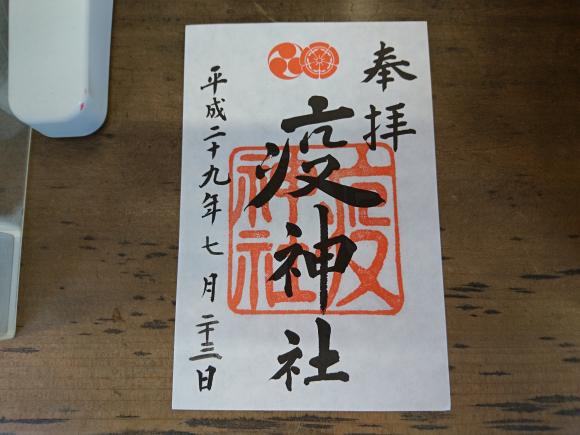 奉拝
疫神社
疫神社
平成二十九年七月二十三日